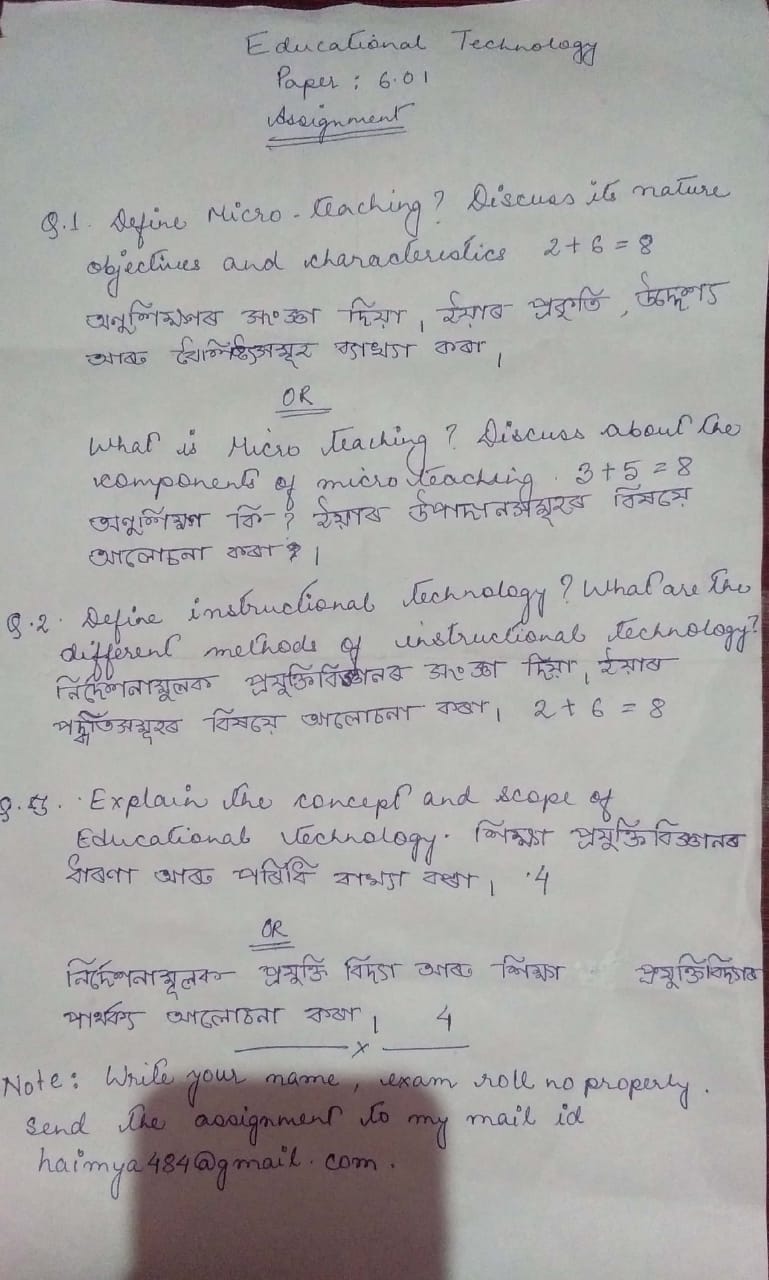 Educational Technology
Paper : 6.01
Assignment
Q.1. Define Micro-teaching? Discuss its nature
objectives and characteristics 2+6=8
অনুশিক্ষণৰ সংজ্ঞা দিয়া, ইয়াৰ প্ৰকৃতি, উদ্দেশ্য
আৰু বৈশিষ্ট্যসমূহ ব্যাখ্যা কৰা,
OR
What is Micro teaching? Discuss about the
components of micro teaching. 3+5=8
অনুশিক্ষণ কি? ইয়াৰ উপাদানসমূহৰ বিষয়ে
আলোচনা কৰা।
Q.2. Define instructional technology? What are the
different methods of instructional technology?
নিৰ্দেশনামূলক প্ৰযুক্তিবিজ্ঞানৰ সংজ্ঞা দিয়া, ইয়াৰ
পদ্ধতিসমূহৰ বিষয়ে আলোচনা কৰা, 2+6=8
Explain the concept and scope of
Educational technology. শিক্ষা প্ৰযুক্তিবিজ্ঞানৰ
ধাৰণা আৰু পৰিধি কৰা, 4
OR
নিৰ্দেশনামূলক প্ৰযুক্তি বিদ্যা আৰু শিক্ষা প্ৰযুক্তিবিদ্যাৰ
পাৰ্থক্য আলোচনা কৰা, 4
x
Note: Write your name, exam roll no properly.
Send the assignment to my mail id
haimya484@gmail.com.